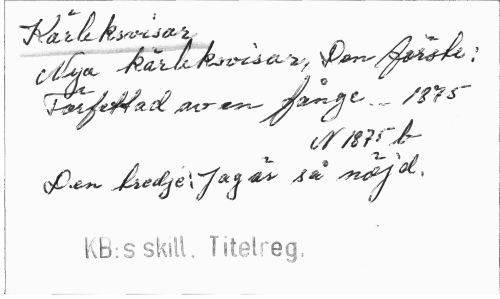 Kärleksvisar
Nya kärleksvisar, Den förste:
Författad av en fånge... 1875
N 1875 b
Den tredje: Jag är så nöjd.
KB:s skill. Titelreg.